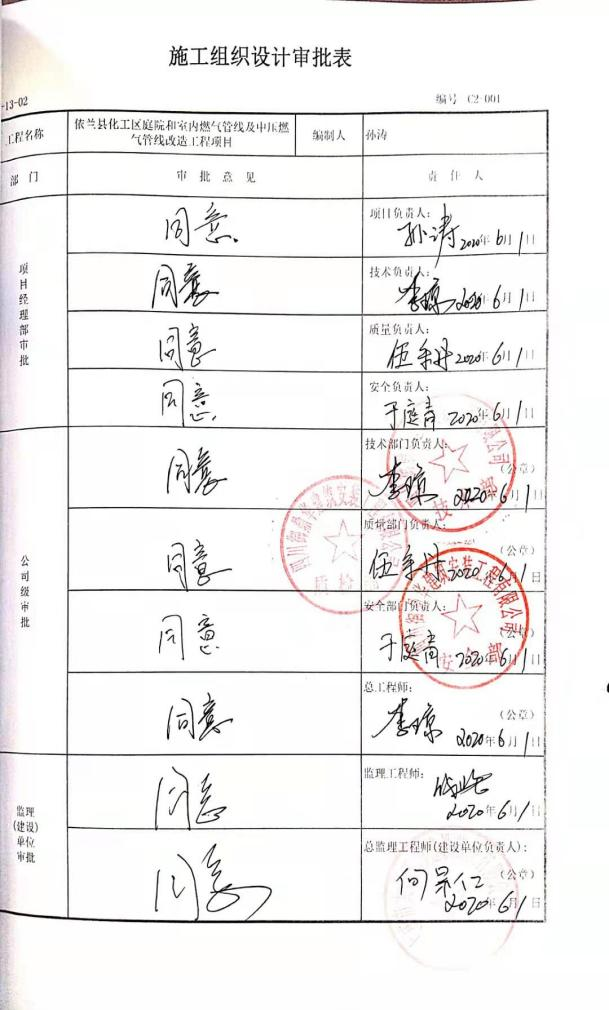 施工组织设计审批表
-13-02
编号 C2-001
工程名称
依兰县化工区庭院和室内燃气管线及中压燃
气管线改造工程项目
编制人
孙涛
部 门
审 批 意 见
责 任 人
项目经理部审批
同意
项目负责人:
孙涛 2020年6月1日
同意
技术负责人:
李琼 2020年6月1日
同意
质量负责人:
伍余丹 2020年6月1日
同意
安全负责人:
于庭青 2020年6月1日
公司级审批
同意
技术部门负责人:
(公章)
李琼 2020年6月1日
技术部
同意
质量部门负责人:
(公章)
伍余丹 2020年6月1日
质检
同意
安全部门负责人:
(公章)
于庭青 2020年6月1日
建筑安装工程有限公司
安全部
同意
总工程师:
(公章)
李琼 2020年6月1日
监理
(建设)
单位
审批
同意
监理工程师:
2020年6月1日
同意
总监理工程师(建设单位负责人):
(公章)
何呆仁
2020年6月1日